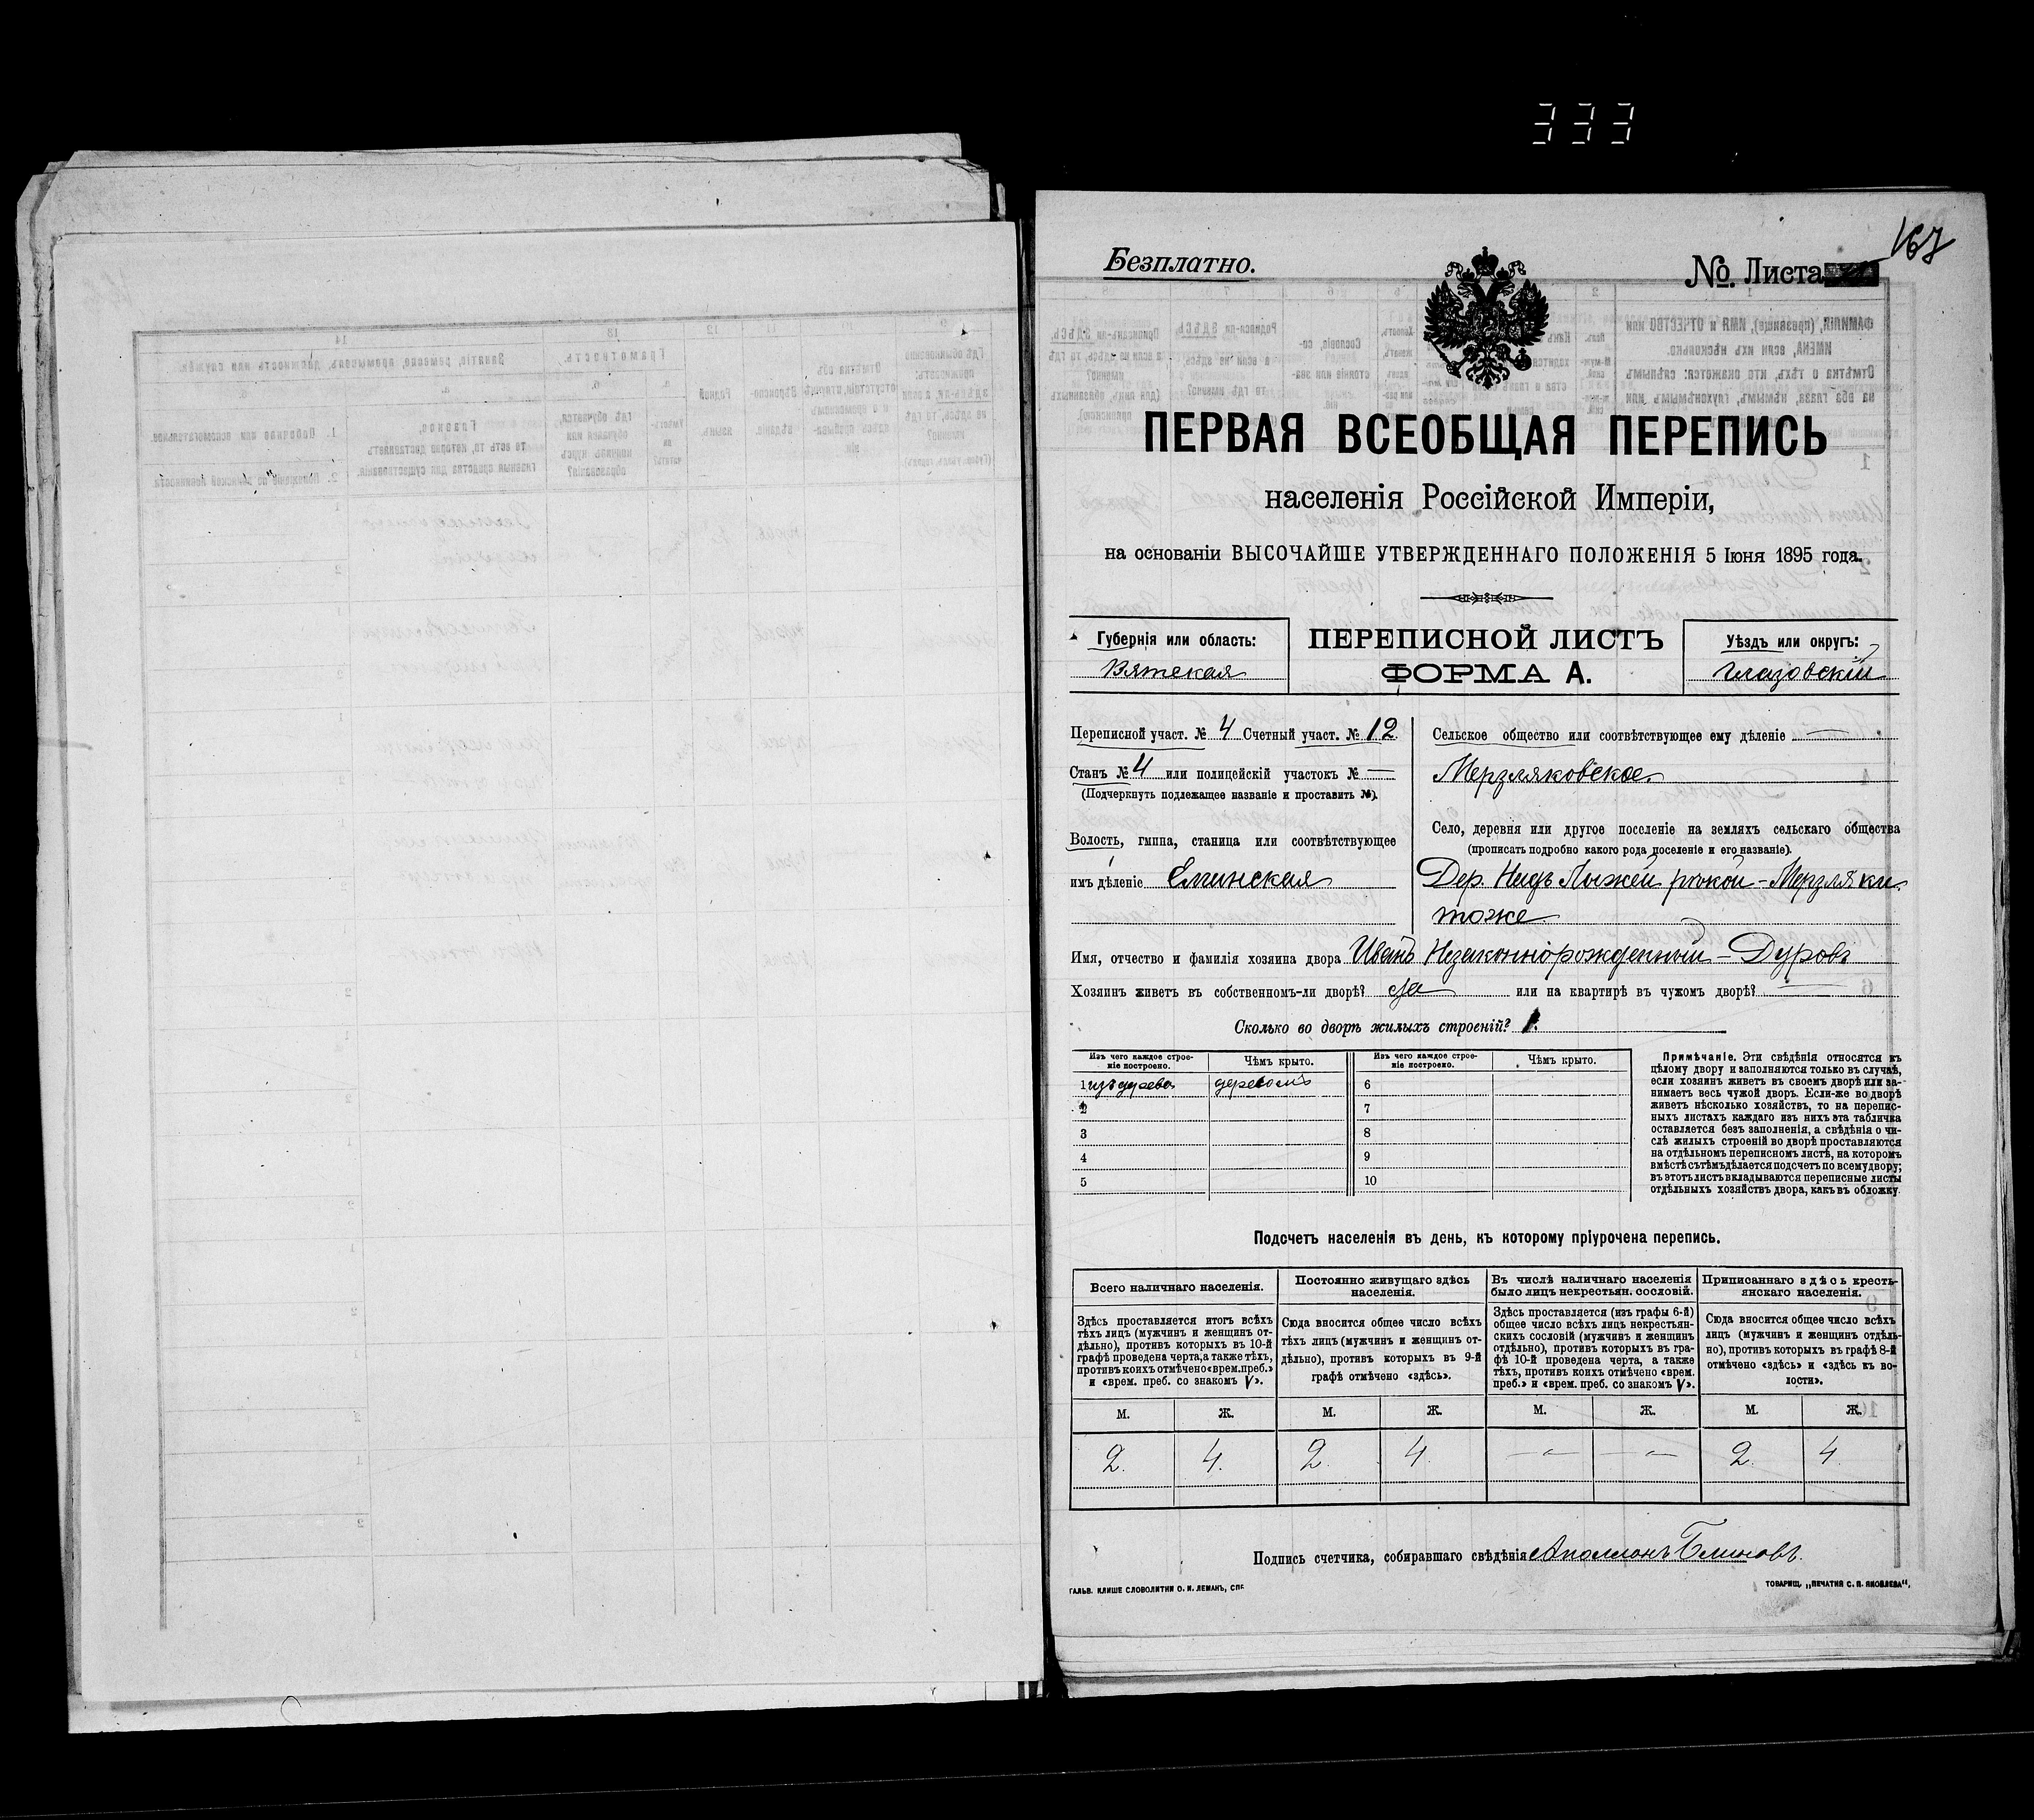 333
167
Безплатно.
№. Листа
ПЕРВАЯ ВСЕОБЩАЯ ПЕРЕПИСЬ
населенія Россійской Имперіи,
на основаніи ВЫСОЧАЙШЕ УТВЕРЖДЕННАГО ПОЛОЖЕНІЯ 5 Іюня 1895 года.
Губернія или область:
Вятская
ПЕРЕПИСНОЙ ЛИСТЪ
ФОРМА А.
Уѣздъ или округъ:
Глазовскій
Переписной участ. № 4 Счетный участ. № 12.
Станъ № 4 или полицейскій участокъ № —
(Подчеркнуть подлежащее названіе и проставить №).
Волость, гмина, станица или соотвѣтствующее
имъ дѣленіе Елинская
Сельское общество или соотвѣтствующее ему дѣленіе —
Мерзляковское.
Село, деревня или другое поселеніе на земляхъ сельскаго общества
(прописать подробно какого рода поселеніе и его названіе).
Дер. Надъ Лыжей рѣкой - Мерзляки
тоже
Имя, отчество и фамилія хозяина двора Иванъ Незаконнорожденный - Дуровъ
Хозяинъ живетъ въ собственномъ-ли дворѣ? да или на квартирѣ въ чужомъ дворѣ? —
Сколько во дворѣ жилыхъ строеній? 1.
Изъ чего каждое строе-
ніе построено.
Чѣмъ крыто.
Изъ чего каждое строе-
ніе построено.
Чѣмъ крыто.
1 изъ дерева деревомъ 6
2 7
3 8
4 9
5 10
Примѣчаніе. Эти свѣдѣнія относятся къ
цѣлому двору и заполняются только въ случаѣ,
если хозяинъ живетъ въ своемъ дворѣ или за-
нимаетъ весь чужой дворъ. Если-же во дворѣ
живетъ нѣсколько хозяйствъ, то на перепис-
ныхъ листахъ каждаго изъ нихъ эта табличка
оставляется безъ заполненія, а свѣдѣнія о чи-
слѣ жилыхъ строеній во дворѣ проставляются
на отдѣльномъ переписномъ листѣ, на которомъ
вмѣстѣ съ тѣмъ дѣлается подсчетъ по всему двору;
въ этотъ листъ вкладываются переписные листы
отдѣльныхъ хозяйствъ двора, какъ въ обложку.
Подсчетъ населенія въ день, къ которому пріурочена перепись.
Всего наличнаго населенія.
Здѣсь проставляется итогъ всѣхъ
тѣхъ лицъ (мужчинъ и женщинъ от-
дѣльно), противъ которыхъ въ 10-й
графѣ проведена черта, а также тѣхъ,
противъ коихъ отмѣчено «врем. преб.»
и «врем. преб. со знакомъ V».
Постоянно живущаго здѣсь
населенія.
Сюда вносится общее число всѣхъ
тѣхъ лицъ (мужчинъ и женщинъ от-
дѣльно), противъ которыхъ въ 9-й
графѣ отмѣчено «здѣсь».
Въ числѣ наличнаго населенія
было лицъ некрестьян. сословій.
Здѣсь проставляется (изъ графы 6-й)
общее число всѣхъ лицъ некрестьян-
скихъ сословій (мужчинъ и женщинъ
отдѣльно), противъ которыхъ въ гра-
фѣ 10-й проведена черта, а также
тѣхъ, противъ коихъ отмѣчено «врем.
преб.» и «врем. преб. со знакомъ V».
Приписаннаго здѣсь кресть-
янскаго населенія.
Сюда вносится общее число всѣхъ
лицъ (мужчинъ и женщинъ отдѣль-
но), противъ которыхъ въ графѣ 8-й
отмѣчено «здѣсь» и «здѣсь къ во-
лости».
М. Ж. М. Ж. М. Ж. М. Ж.
2. 4. 2. 4. — — 2. 4.
Подпись счетчика, собиравшаго свѣдѣнія Аполлонъ Блиновъ.
ГАЛЬВ. КЛИШЕ СЛОВОЛИТНИ О. И. ЛЕМАНЪ, СПБ
ТОВАРИЩ. „ПЕЧАТНЯ С. П. ЯКОВЛЕВА“,